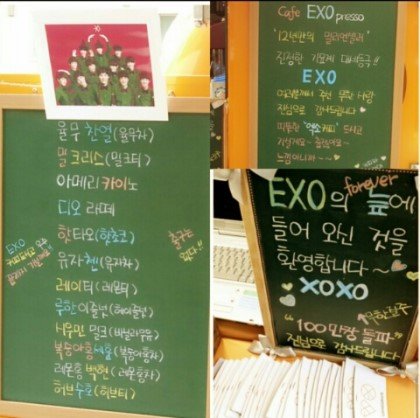 율무 찬열(율무차)
밀 크리스(밀크티)
아메리 카이노
디오 라떼
핫 타오(핫초코)
유자 첸(유자차)
레이티(레몬티)
루한 이즐넛(헤이즐넛)
시우민 밀크(바닐라우유)
복숭아홍 세훈(복숭아홍차)
레몬홍 백현(레몬홍차)
허브 수호(허브티)
EXO
축구는
Cafe EXOpresso
"12년만의 밀리언셀러"
진정한 기록제 대세등극!!
EXO
여러분께서 주신 뜨거운 사랑
진심으로 감사드립니다
따뜻한 "엑소커피" 드시고
EXO의 forever 늪에
들어 오신 것을
환영합니다~
XOXO
"100만장 돌파"
진심으로 감사드립니다